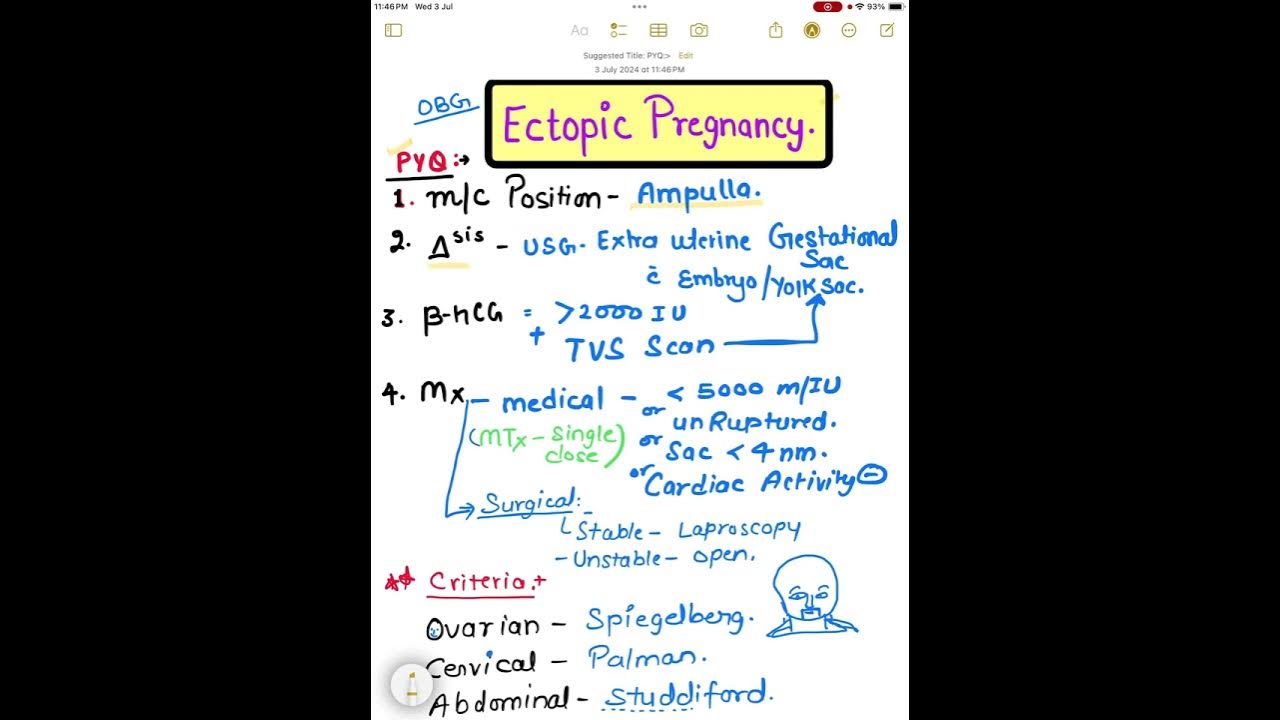 11:46 PM Wed 3 Jul
93%
Aa
Suggested Title: PYQ:> Edit
3 July 2024 at 11:46 PM
OBG
Ectopic Pregnancy.
PYQ:→
1. m/c Position - Ampulla.
2. Δsis - USG. Extra uterine Gestational Sac
c̄ Embryo/Yolk Sac.
3. β-hCG = >2000 IU
+ TVS Scan
4. Mx - medical - < 5000 m/IU
(MTx - Single close)
or unRuptured.
or Sac < 4 nm.
or Cardiac Activity ⊖
→ Surgical:-
Stable - Laproscopy
- Unstable - Open.
** Criteria.+
Ovarian - Spiegelberg.
Cervical - Palman.
Abdominal - Studdiford.